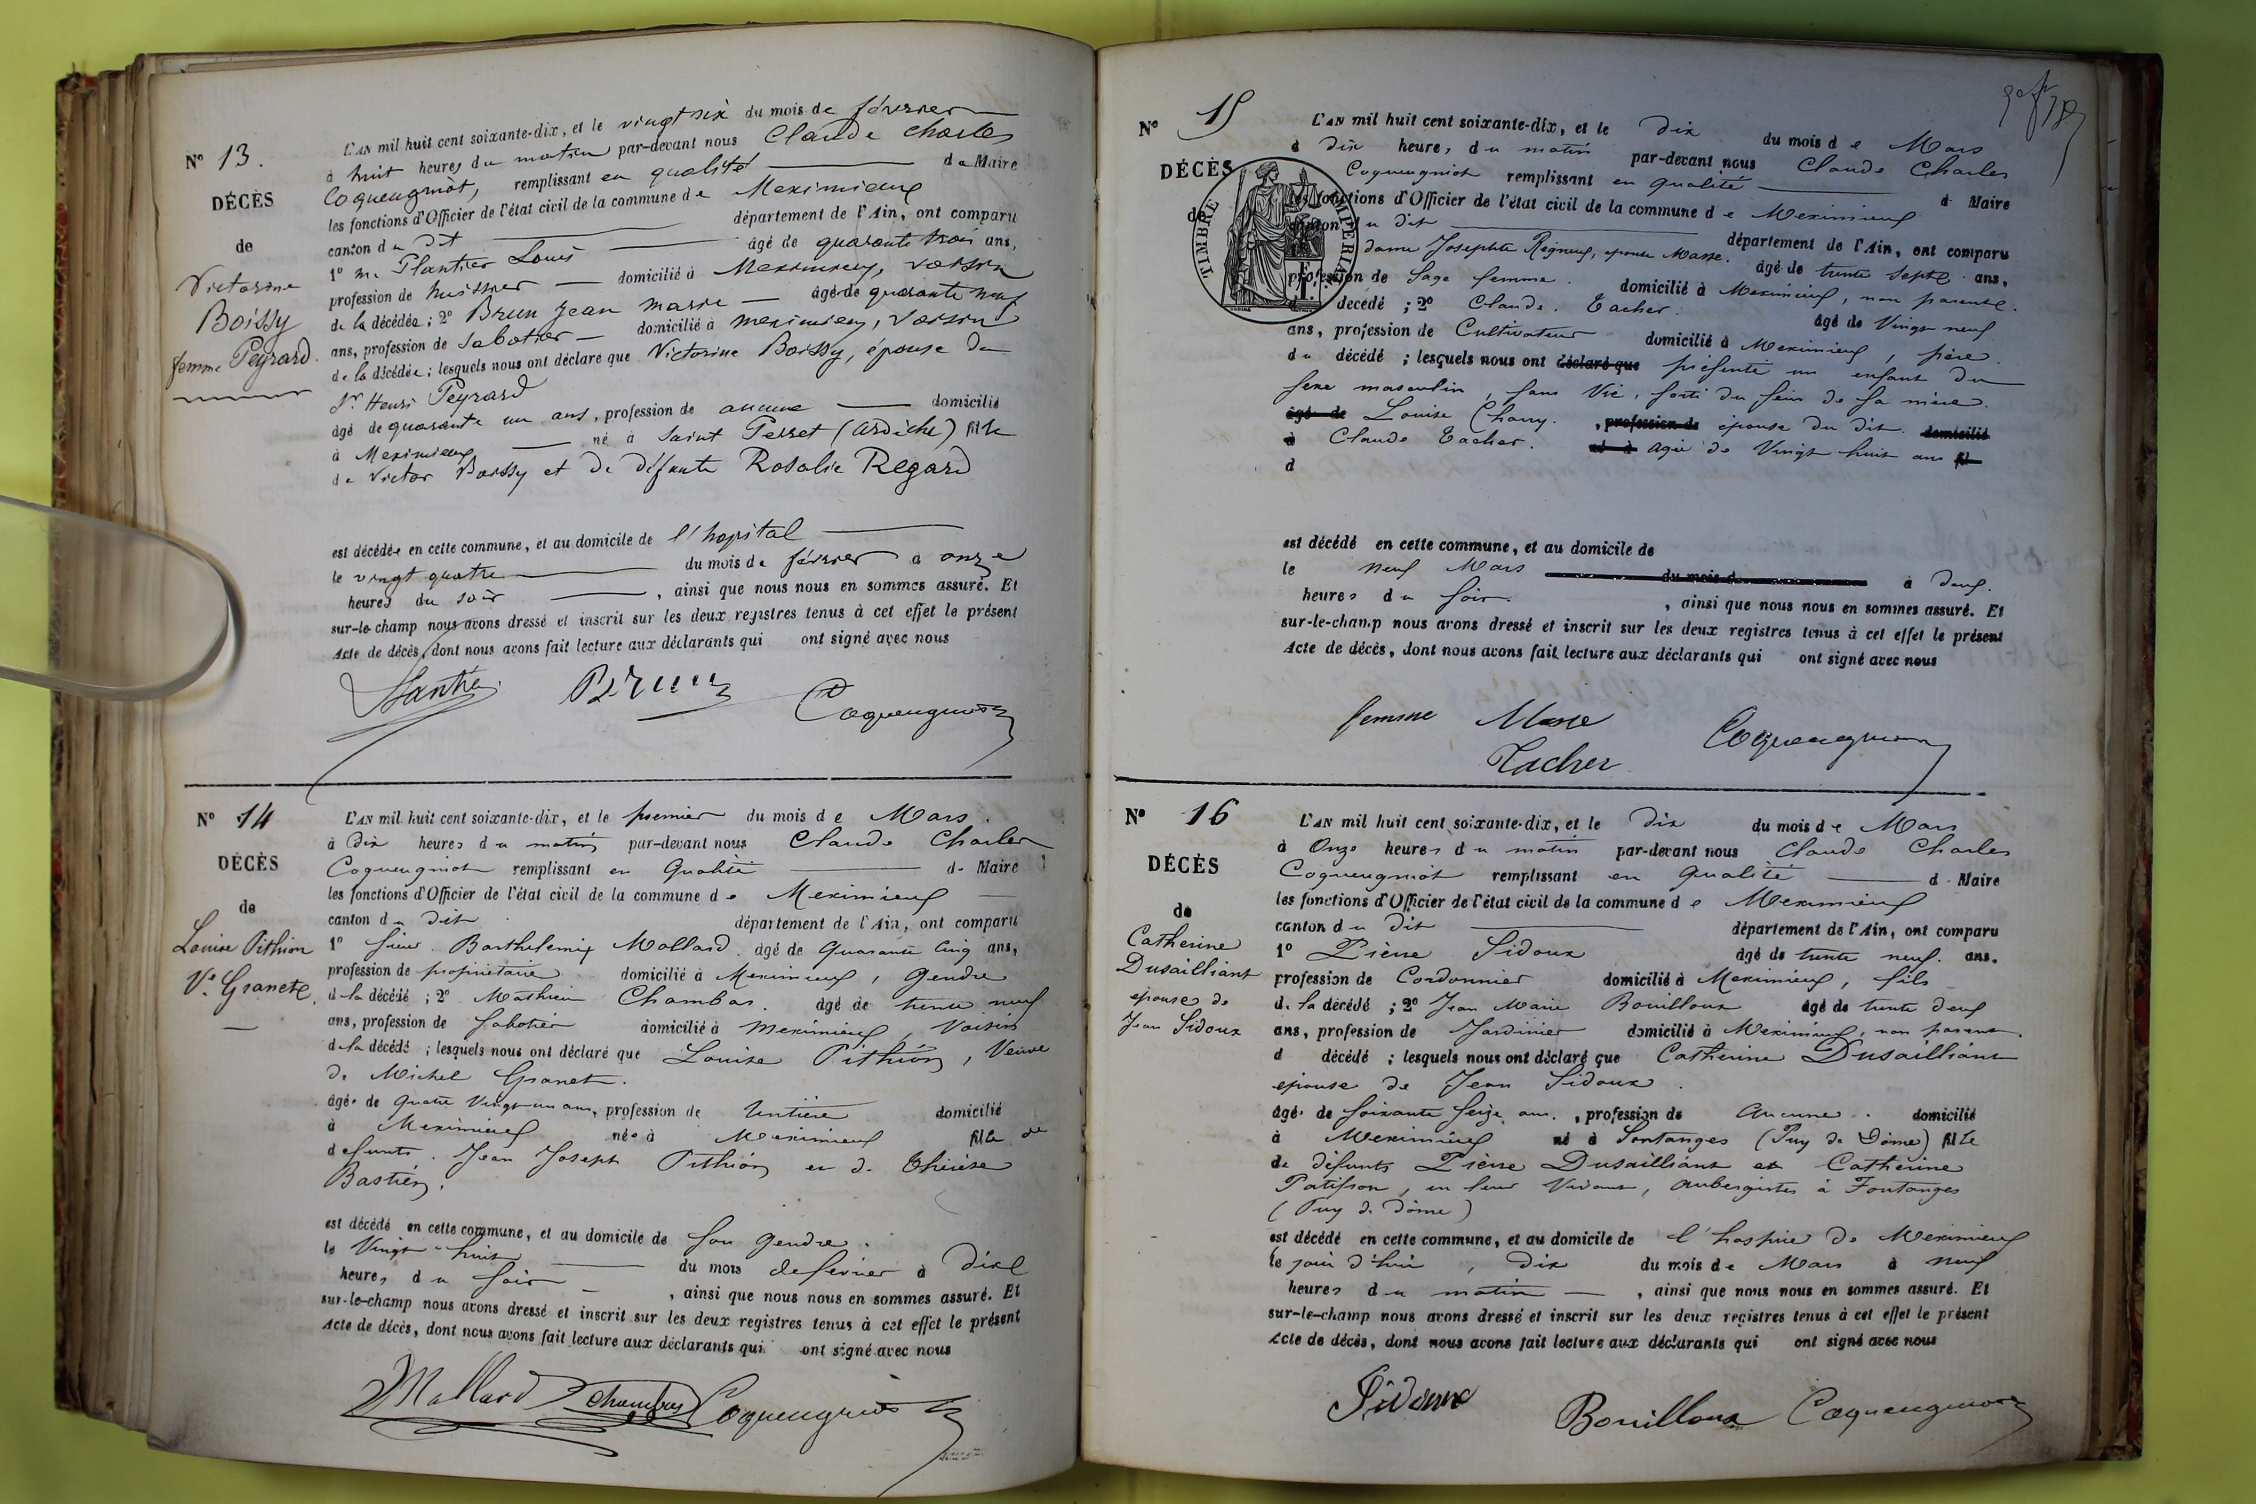 N° 13.
DÉCÈS
de
Victorine
Boissy
femme Peyrard.
L'AN mil huit cent soixante-dix, et le vingt six du mois de février
à huit heures du matin par-devant nous Claude Charles
Coqueugniot, remplissant en qualité de Maire
les fonctions d'Officier de l'état civil de la commune de Meximieux
canton du dit département de l'Ain, ont comparu
1° Mr Plantier Louis âgé de quarante trois ans,
profession de huissier domicilié à Meximieux, voisin
de la décédée ; 2° Brun Jean marie âgé de quarante neuf
ans, profession de Sabotier domicilié à meximieux, voisin
de la décédée ; lesquels nous ont déclaré que Victorine Boissy, épouse du
Sr Henri Peyrard
âgé de quarante un ans, profession de aucune domicilié
à Meximieux né à Saint Perret (Ardèche) fille
de Victor Boissy et de défunte Rosalie Regard
est décédée en cette commune, et au domicile de l'hopital
le vingt quatre du mois de février à onze
heures du soir , ainsi que nous nous en sommes assuré. Et
sur-le-champ nous avons dressé et inscrit sur les deux registres tenus à cet effet le présent
Acte de décès, dont nous avons fait lecture aux déclarants qui ont signé avec nous
Plantier Brun Coqueugniot
N° 14
DÉCÈS
de
Louise Pithion
Ve Granet
L'AN mil huit cent soixante-dix, et le premier du mois de Mars.
à Dix heures du matin par-devant nous Claude Charles
Coqueugniot remplissant en Qualité de Maire
les fonctions d'Officier de l'état civil de la commune de Meximieux
canton du dit département de l'Ain, ont comparu
1° Sieur Barthelemy Mollard âgé de Quarante cinq ans,
profession de propriétaire domicilié à Meximieux, Gendre
de la décédé ; 2° Mathieu Chambas. âgé de trente neuf
ans, profession de Sabotier domicilié à Meximieux, Voisin
de la décédé ; lesquels nous ont déclaré que Louise Pithion, Veuve
de Michel Granet.
âgé de Quatre Vingt un ans, profession de Rentière domicilié
à Meximieux née à Meximieux fille de
defunts Jean Joseph Pithion et de Thérèse
Bastien.
est décédé en cette commune, et au domicile de son Gendre.
le Vingt huit du mois de fevrier à Dix
heures du soir , ainsi que nous nous en sommes assuré. Et
sur-le-champ nous avons dressé et inscrit sur les deux registres tenus à cet effet le présent
Acte de décès, dont nous avons fait lecture aux déclarants qui ont signé avec nous
Mollard Chambas Coqueugniot
N° 15
DÉCÈS
de
TIMBRE IMPERIAL
L'AN mil huit cent soixante-dix, et le dix du mois de Mars
à Dix heures du matin par-devant nous Claude Charles
Coqueugniot remplissant en Qualité de Maire
les fonctions d'Officier de l'état civil de la commune de Meximieux
canton du dit département de l'Ain, ont comparu
dame Josephte Regneux, epouse Masse. âgé de trente sept ans,
profession de Sage femme. domicilié à Meximieux, non parente.
d décédé ; 2° Claude Tacher. âgé de Vingt neuf
ans, profession de Cultivateur domicilié à Meximieux, père.
du décédé ; lesquels nous ont déclaré que présenté un enfant du
sexe masculin, sans Vie, sorti du sein de sa mère.
âgé de Louise Charry. , profession de épouse du dit domicilié
à Claude Tacher. né à agée de Vingt huit ans fil
d
est décédé en cette commune, et au domicile de
le neuf Mars du mois d à deux
heures du soir. , ainsi que nous nous en sommes assuré. Et
sur-le-champ nous avons dressé et inscrit sur les deux registres tenus à cet effet le présent
Acte de décès, dont nous avons fait lecture aux déclarants qui ont signé avec nous
femme Masse Coqueugniot
Tacher
N° 16
DÉCÈS
de
Catherine
Dusailliant
epouse de
Jean Sidoux
L'AN mil huit cent soixante-dix, et le dix du mois de Mars
à Onze heures du matin par-devant nous Claude Charles
Coqueugniot remplissant en Qualité de Maire
les fonctions d'Officier de l'état civil de la commune de Meximieux
canton du dit département de l'Ain, ont comparu
1° Pierre Sidoux âgé de trente neuf. ans.
profession de Cordonnier domicilié à Meximieux, fils
de la décédé ; 2° Jean Marie Bouilloux âgé de trente deux
ans, profession de Jardinier domicilié à Meximieux, non parent.
d décédé ; lesquels nous ont déclaré que Catherine Dusailliant
epouse de Jean Sidoux.
âgé de soixante seize ans. , profession de Aucune. domicilié
à Meximieux né à Fontanges (Puy de Dôme) fille
de défunts Pierre Dusailliant et Catherine
Patisson, en leur Vivant, aubergistes à Fontanges
(Puy de Dôme)
est décédé en cette commune, et au domicile de l'hospice de Meximieux
le jour d'hui, Dix du mois de Mars à neuf
heures du matin , ainsi que nous nous en sommes assuré. Et
sur-le-champ nous avons dressé et inscrit sur les deux registres tenus à cet effet le présent
Acte de décès, dont nous avons fait lecture aux déclarants qui ont signé avec nous
Sidoux Bouilloux Coqueugniot